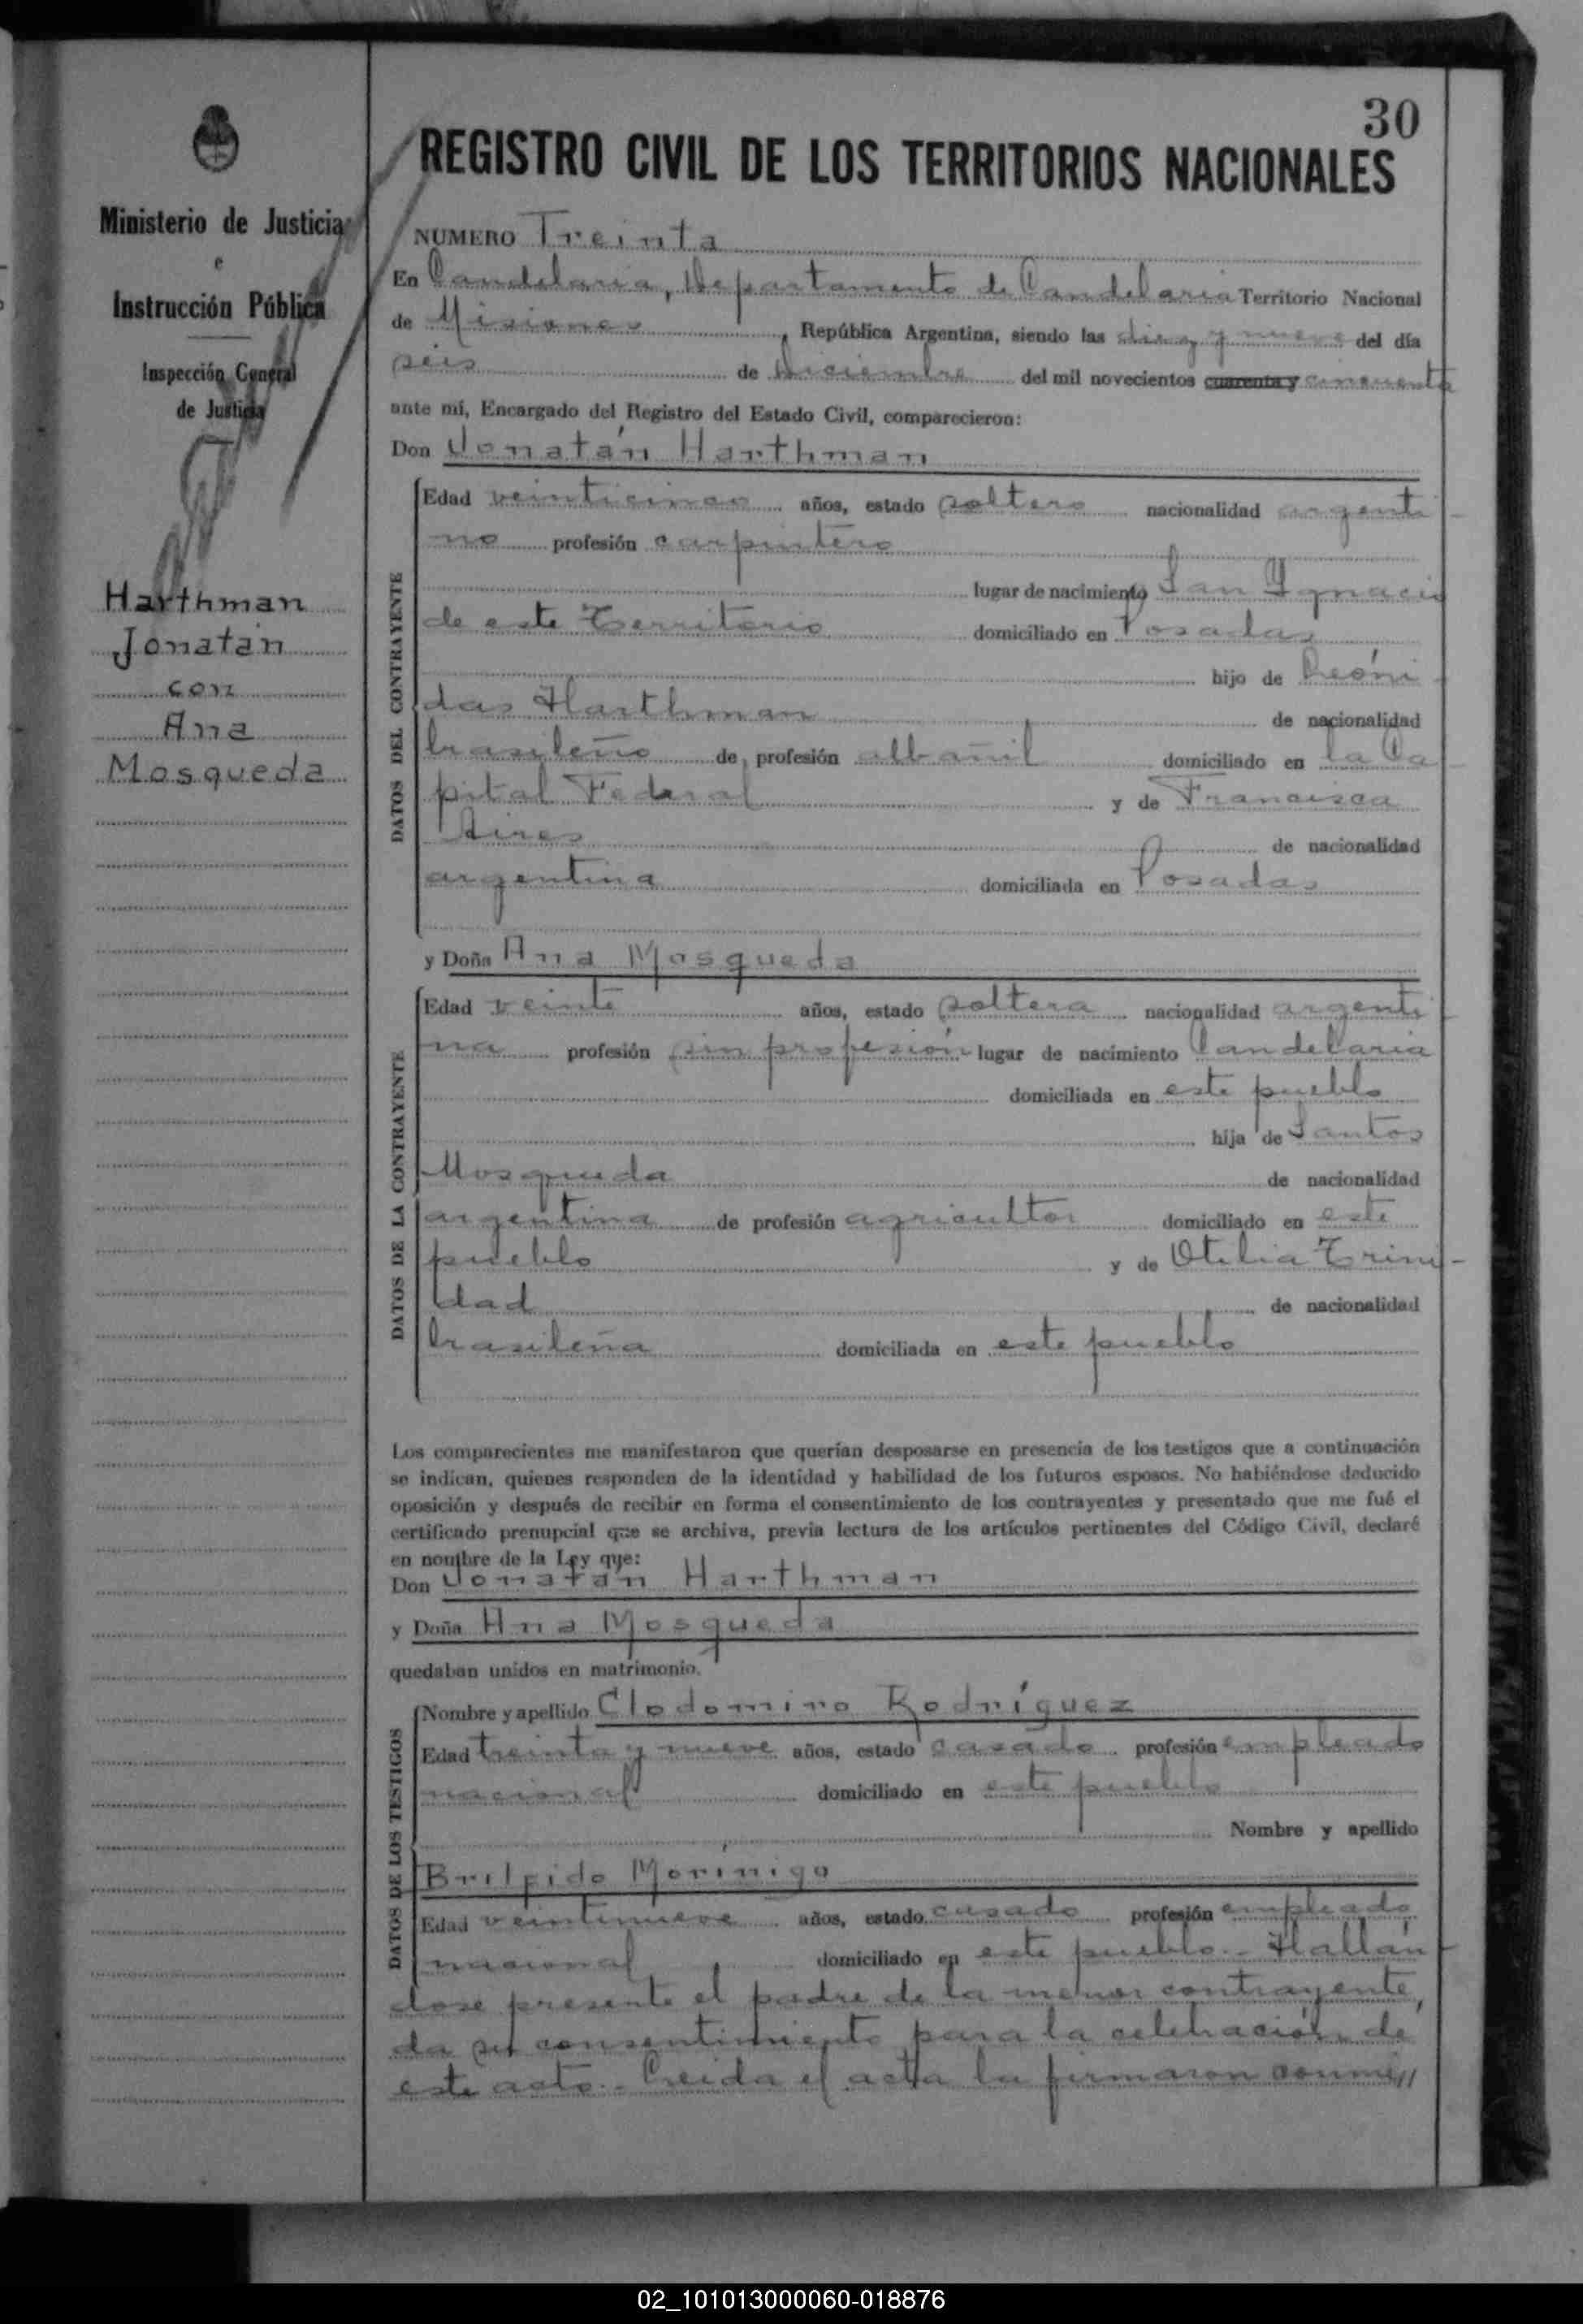 30
REGISTRO CIVIL DE LOS TERRITORIOS NACIONALES
Ministerio de Justicia
e
Instrucción Pública
Inspección General
de Justicia
Harthman
Jonatán
con
Ana
Mosqueda
NUMERO Treinta
En Candelaria, Departamento de Candelaria Territorio Nacional
de Misiones, República Argentina, siendo las diez y nueve del día
seis de Diciembre del mil novecientos cuarenta y cincuenta
ante mí, Encargado del Registro del Estado Civil, comparecieron:
Don Jonatán Harthman
DATOS DEL CONTRAYENTE
Edad veinticinco años, estado soltero nacionalidad argenti-
no profesión carpintero
lugar de nacimiento San Ygnacio
de este Territorio domiciliado en Posadas
hijo de Leóni-
das Harthman de nacionalidad
brasileño de profesión albañil domiciliado en la Ca-
pital Federal y de Francisca
Aires de nacionalidad
argentina domiciliada en Posadas
y Doña Ana Mosqueda
DATOS DE LA CONTRAYENTE
Edad veinte años, estado soltera nacionalidad argenti-
na profesión sin profesión lugar de nacimiento Candelaria
domiciliada en este pueblo
hija de Santos
Mosqueda de nacionalidad
argentina de profesión agricultor domiciliado en este
pueblo y de Otilia Trini-
dad de nacionalidad
brasileña domiciliada en este pueblo
Los comparecientes me manifestaron que querían desposarse en presencia de los testigos que a continuación
se indican, quienes responden de la identidad y habilidad de los futuros esposos. No habiéndose deducido
oposición y después de recibir en forma el consentimiento de los contrayentes y presentado que me fué el
certificado prenupcial que se archiva, previa lectura de los artículos pertinentes del Código Civil, declaré
en nombre de la Ley que:
Don Jonatán Harthman
y Doña Ana Mosqueda
quedaban unidos en matrimonio.
DATOS DE LOS TESTIGOS
Nombre y apellido Clodomiro Rodríguez
Edad treinta y nueve años, estado casado profesión empleado
nacional domiciliado en este pueblo
Nombre y apellido
Brilfido Morínigo
Edad veintinueve años, estado casado profesión empleado
nacional domiciliado en este pueblo.- Hallán-
dose presente el padre de la menor contrayente,
da su consentimiento para la celebración de
este acto.- Leida el acta la firmaron conmi//
02_101013000060-018876